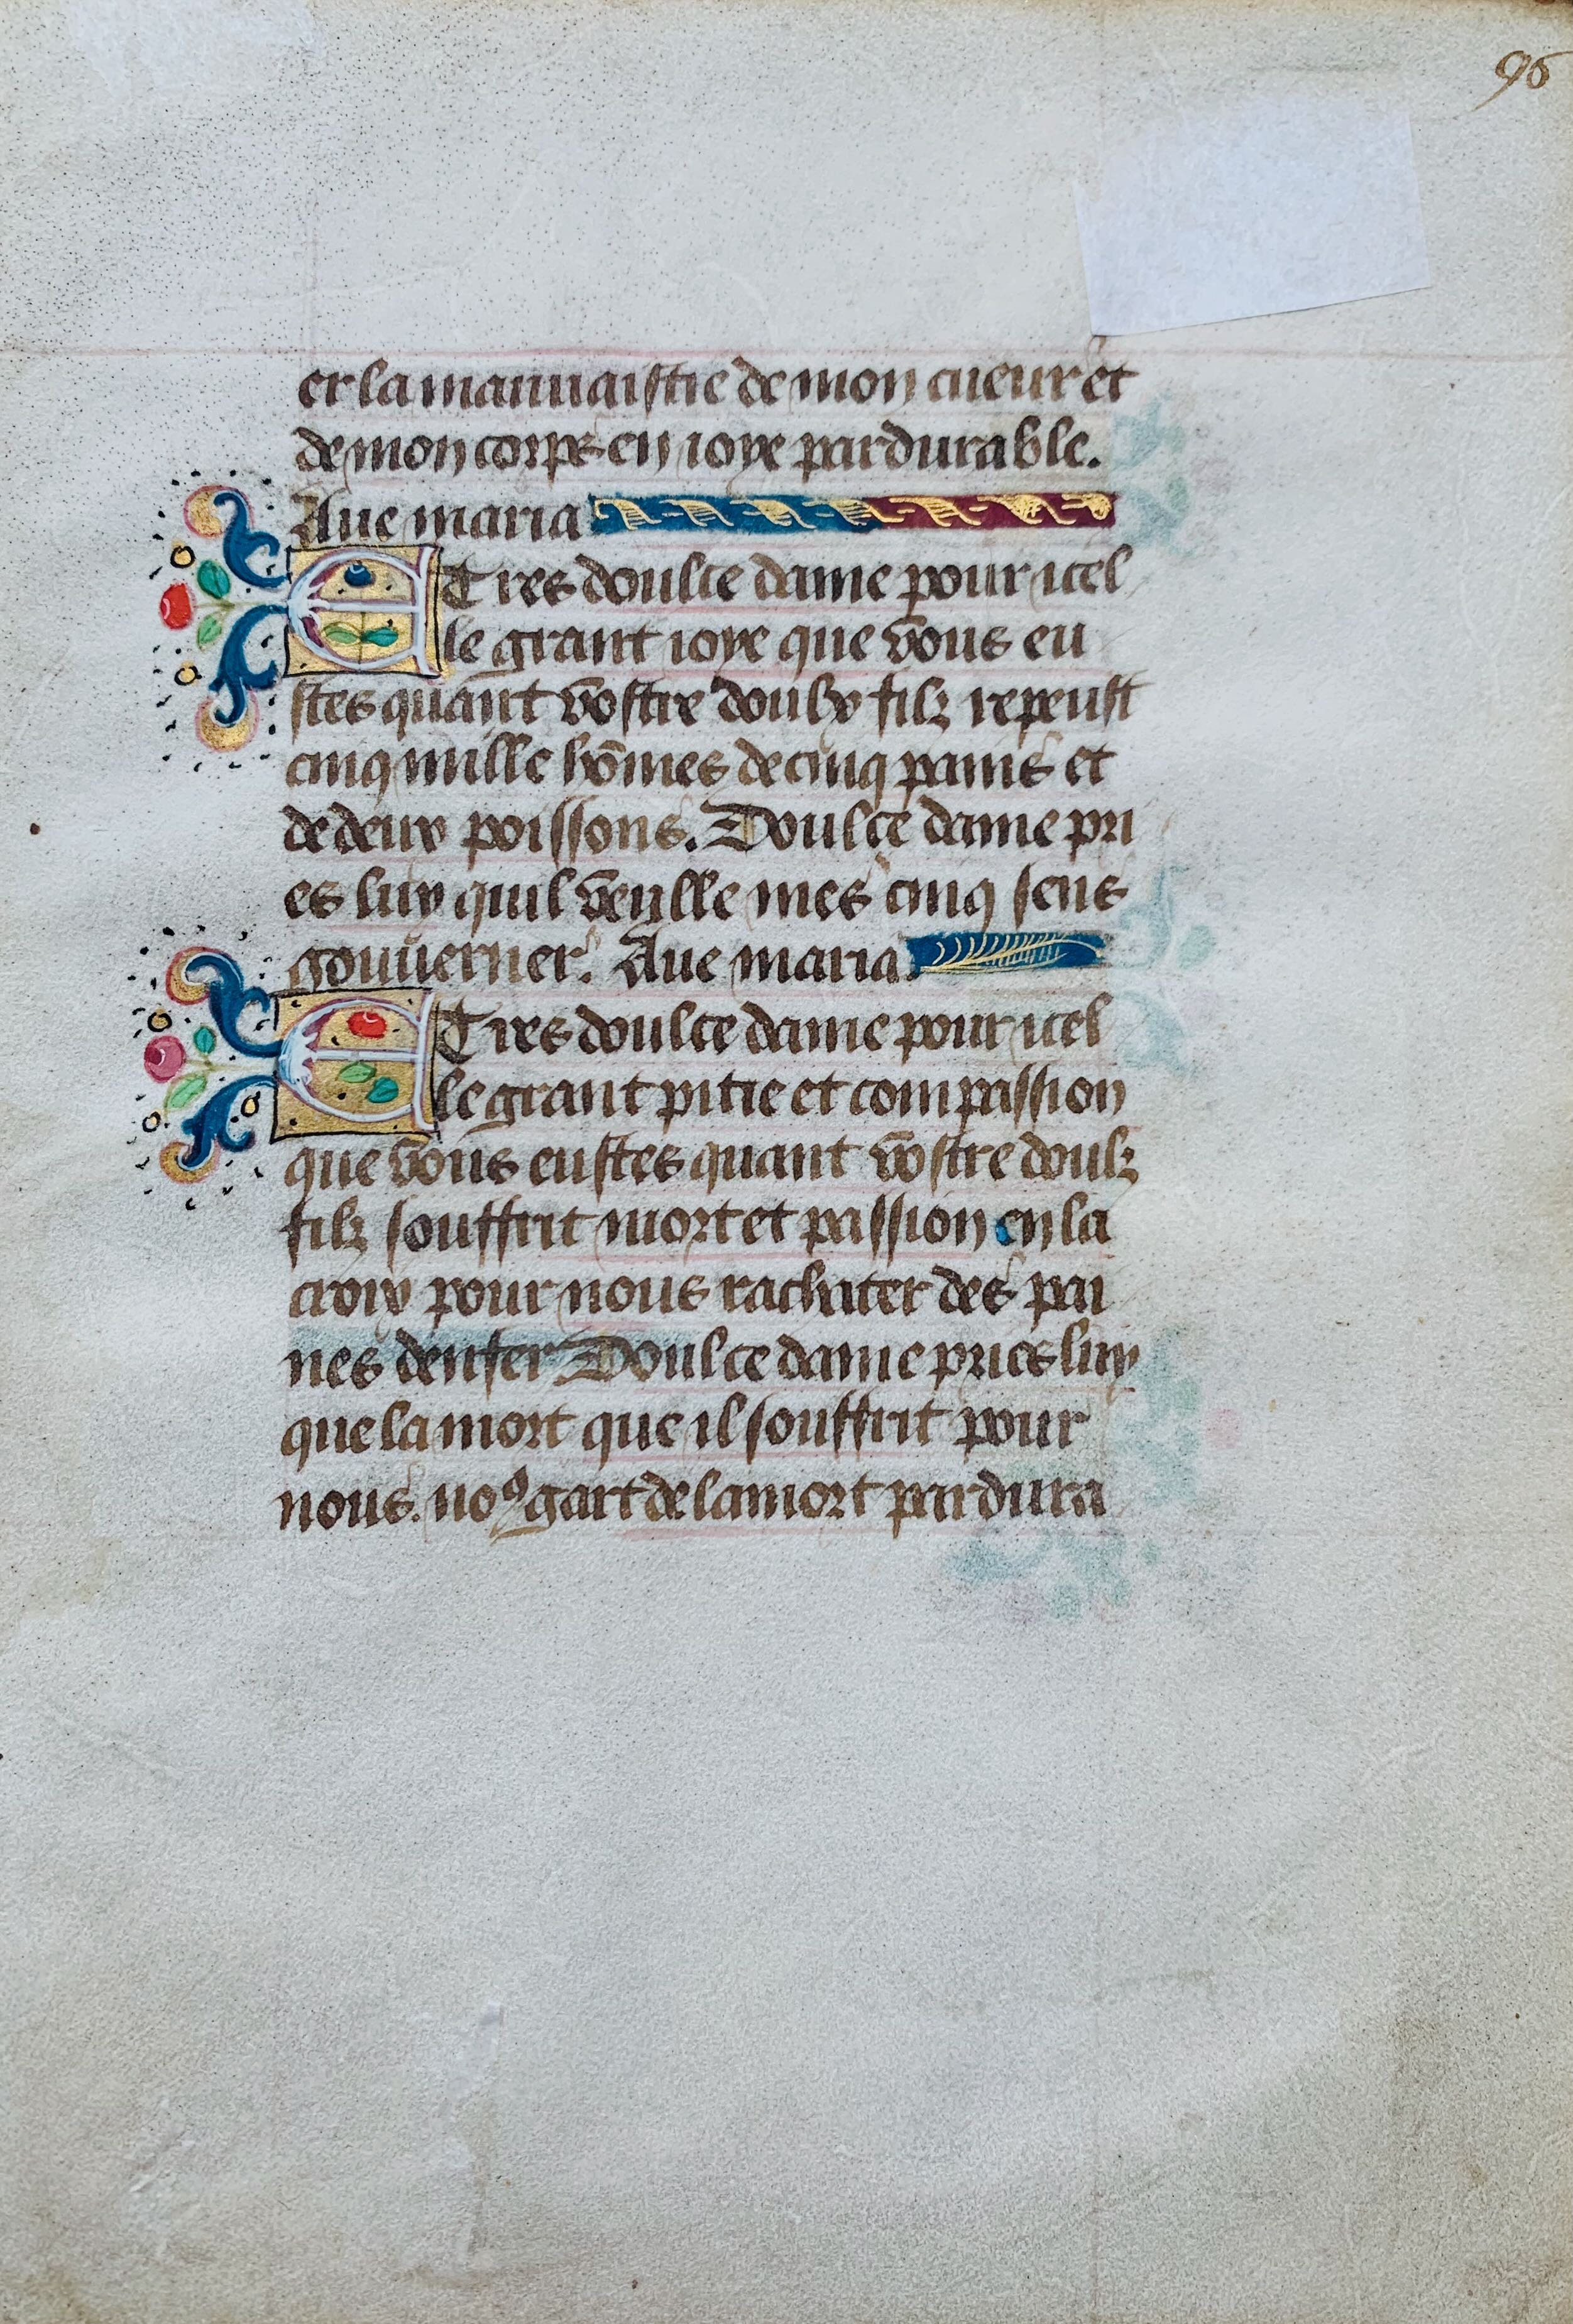 96
er la mauuaistie de mon cueur et
de mon corps en ioye pardurable.
Aue maria
E Tres doulce dame pour icel
le grant ioye que vous eu
stes quant vostre doulx filz repeust
cinq mille hōmes de cinq pains et
de deux poissons. Doulce dame pri
es luy quil veulle mes cinq sens
gouuerner. Aue maria.
E Tres doulce dame pour icel
le grant pitie et compassion
que vous eustes quant vostre doulz
filz souffrit mort et passion en la
croix pour nous rachater des pai
nes denfer Doulce dame pries luy
que la mort que il souffrit pour
nous. noꝰ gart de la mort pardura